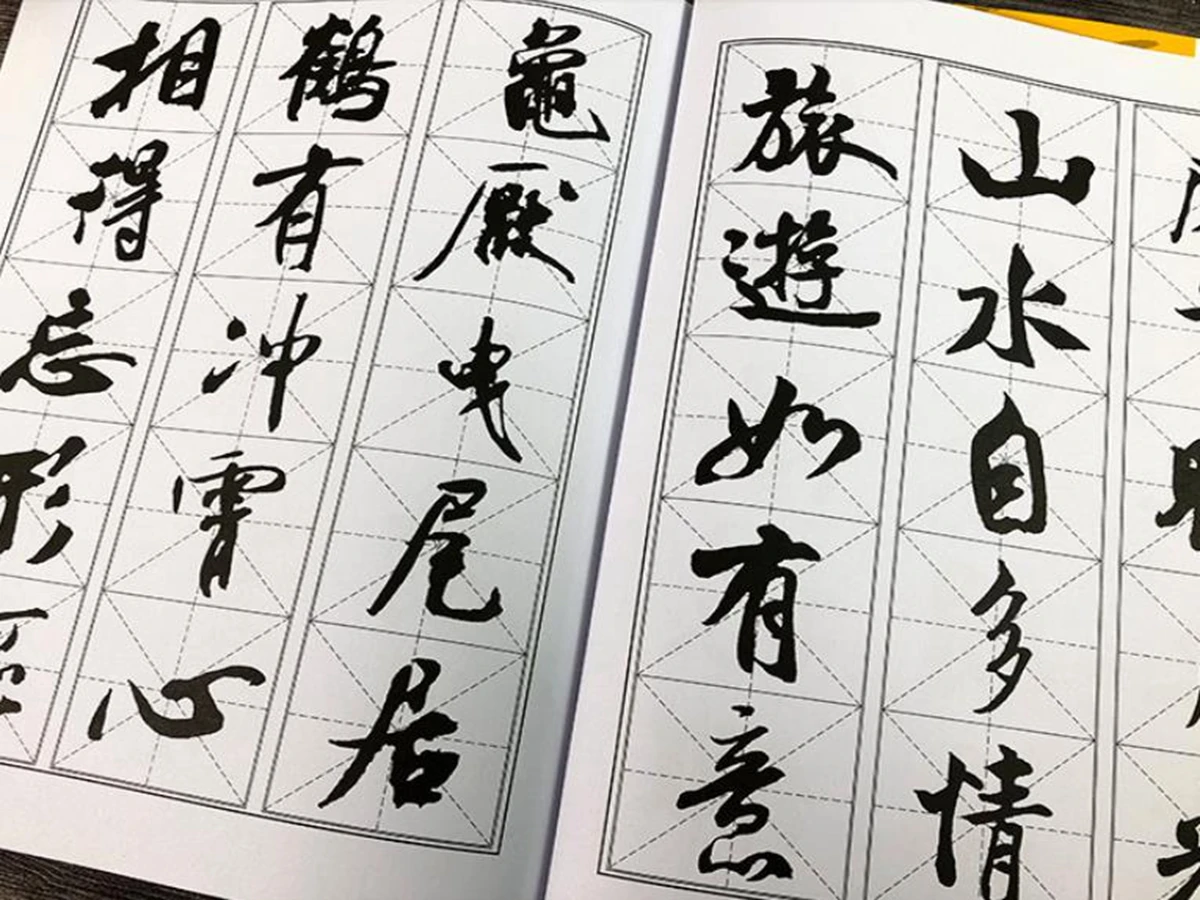 山水自多情
旅遊如有意
龜厭曳尾居
鶴有冲霄心
相得忘形